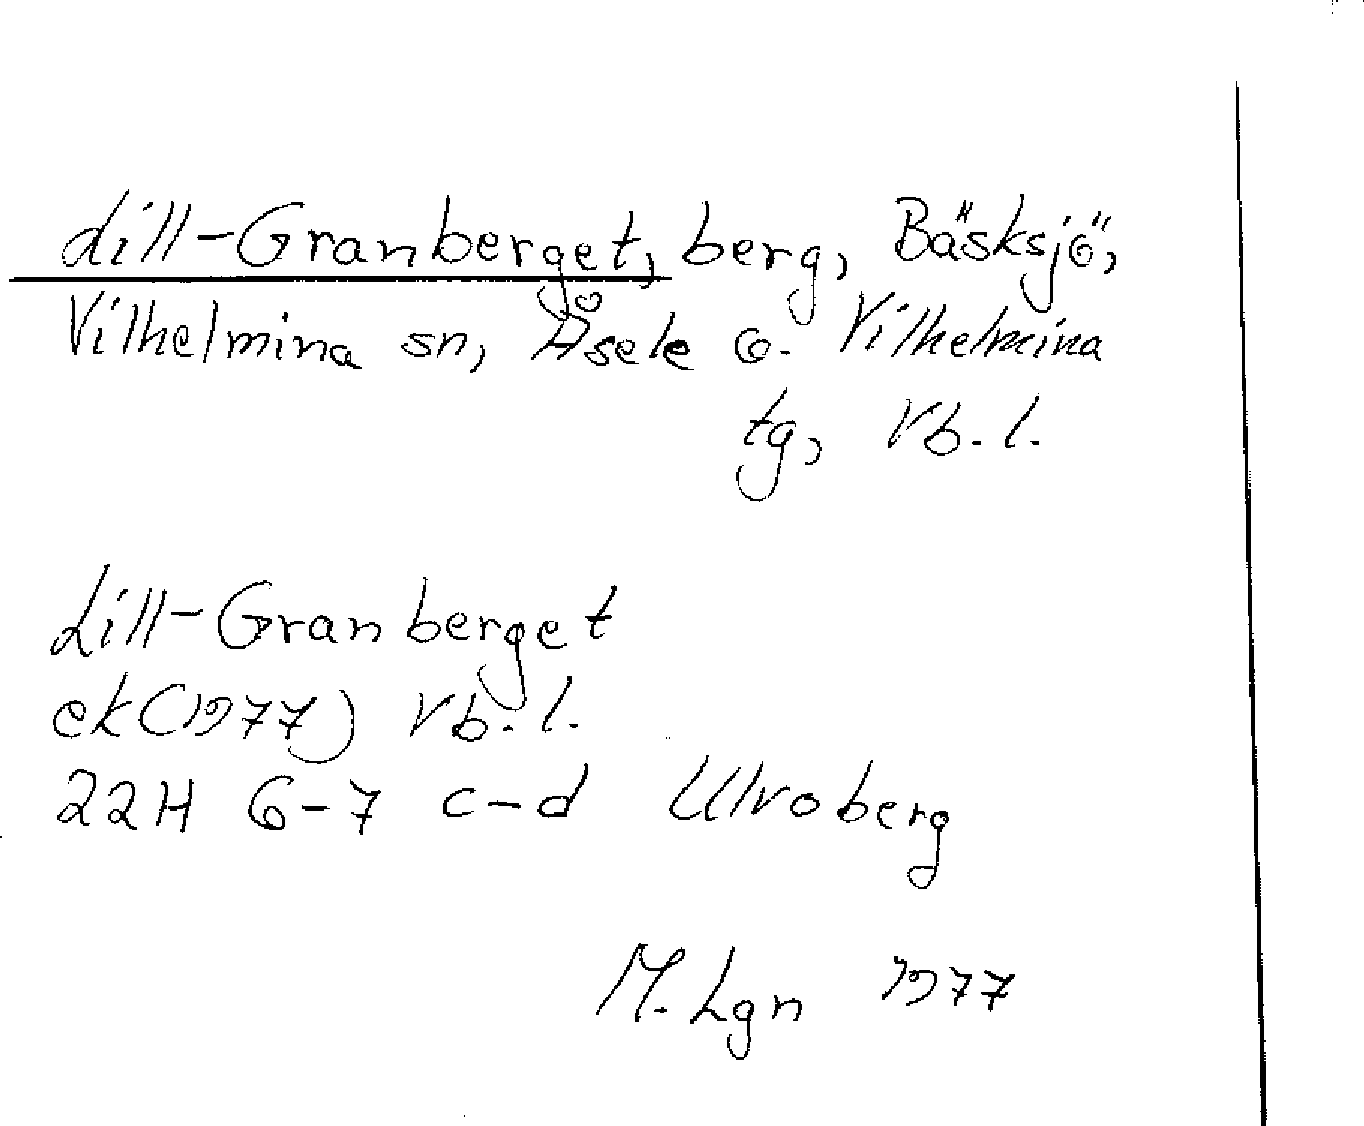 Lill-Granberget, berg, Bäsksjö,
Vilhelmina sn, Åsele o. Vilhelmina
tg, Vb. l.
Lill-Granberget
ek(1977) Vb. l.
22H 6-7 c-d Ulvoberg
M. Lgn 1977